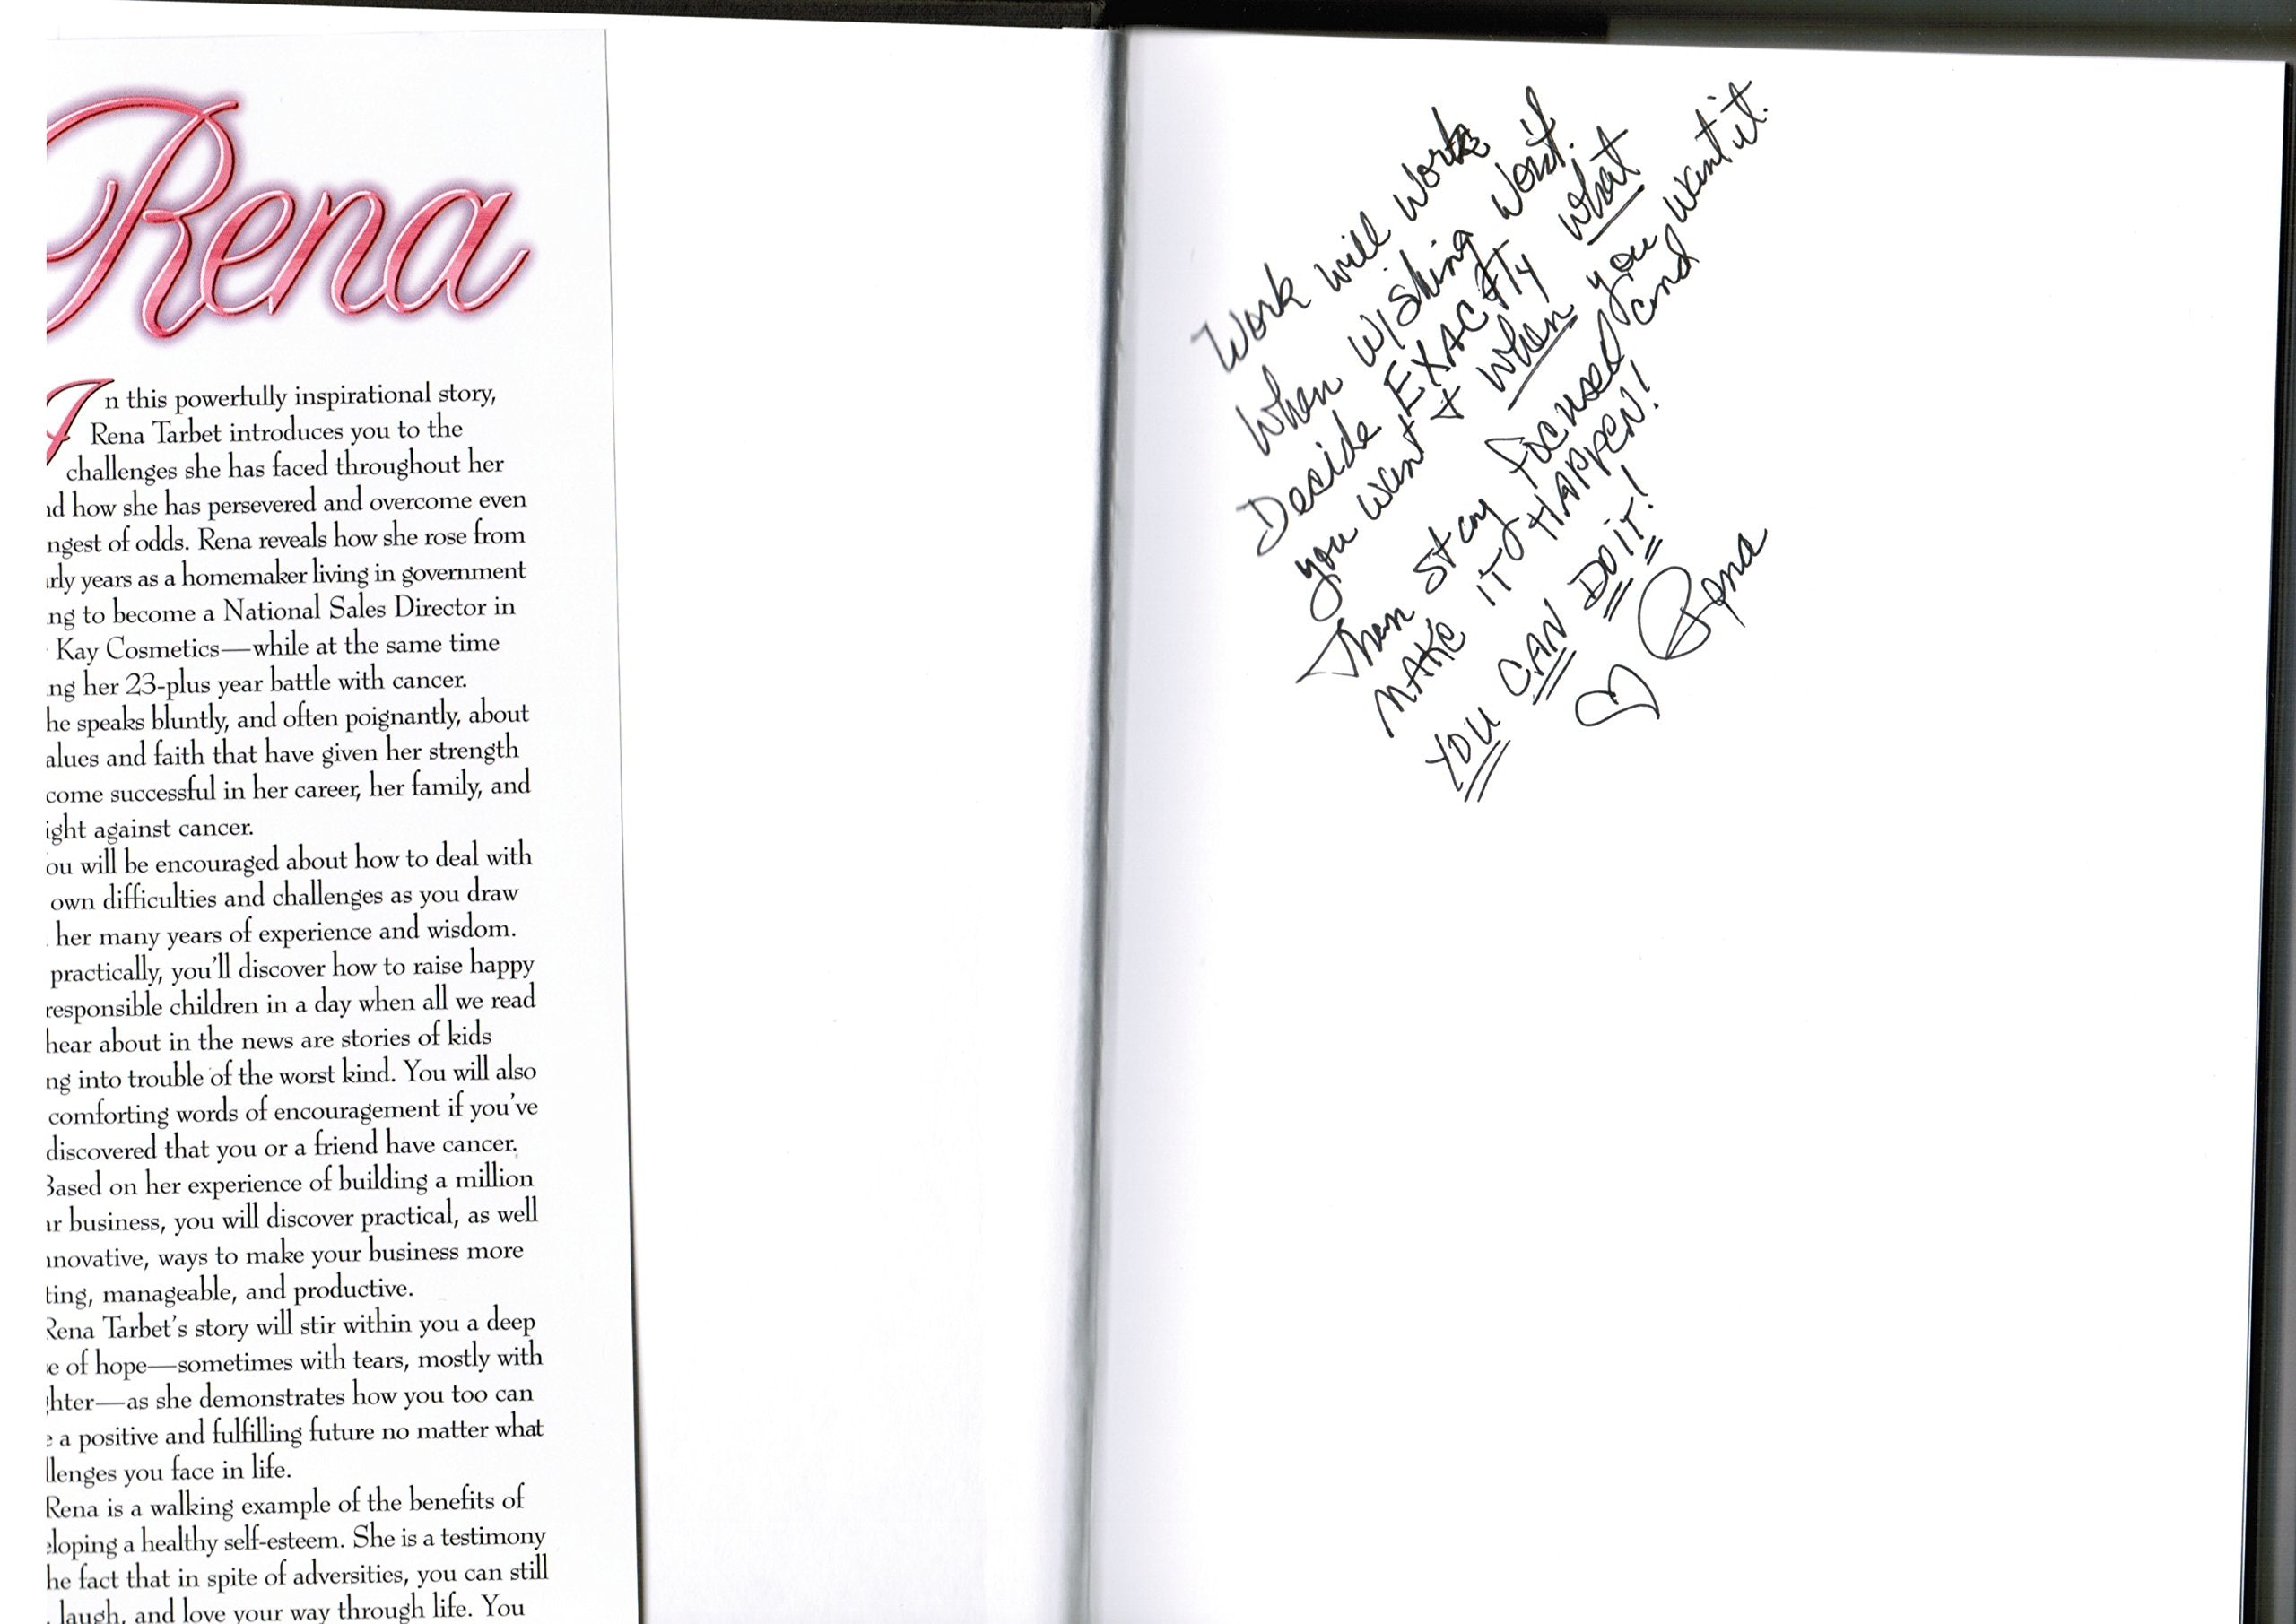 Rena
In this powerfully inspirational story,
Rena Tarbet introduces you to the
challenges she has faced throughout her
how she has persevered and overcome even
of odds. Rena reveals how she rose from
years as a homemaker living in government
to become a National Sales Director in
Kay Cosmetics—while at the same time
her 23-plus year battle with cancer.
he speaks bluntly, and often poignantly, about
alues and faith that have given her strength
come successful in her career, her family, and
ight against cancer.
ou will be encouraged about how to deal with
own difficulties and challenges as you draw
her many years of experience and wisdom.
practically, you'll discover how to raise happy
responsible children in a day when all we read
hear about in the news are stories of kids
ng into trouble of the worst kind. You will also
comforting words of encouragement if you've
discovered that you or a friend have cancer.
Based on her experience of building a million
r business, you will discover practical, as well
novative, ways to make your business more
ting, manageable, and productive.
Rena Tarbet's story will stir within you a deep
e of hope—sometimes with tears, mostly with
hter—as she demonstrates how you too can
a positive and fulfilling future no matter what
llenges you face in life.
Rena is a walking example of the benefits of
loping a healthy self-esteem. She is a testimony
he fact that in spite of adversities, you can still
laugh, and love your way through life. You
Work will work
When wishing won't.
Decide EXACTLY what
you want + when you want it.
Then stay focused and
MAKE IT HAPPEN!
YOU CAN DO IT!
♡ Rena